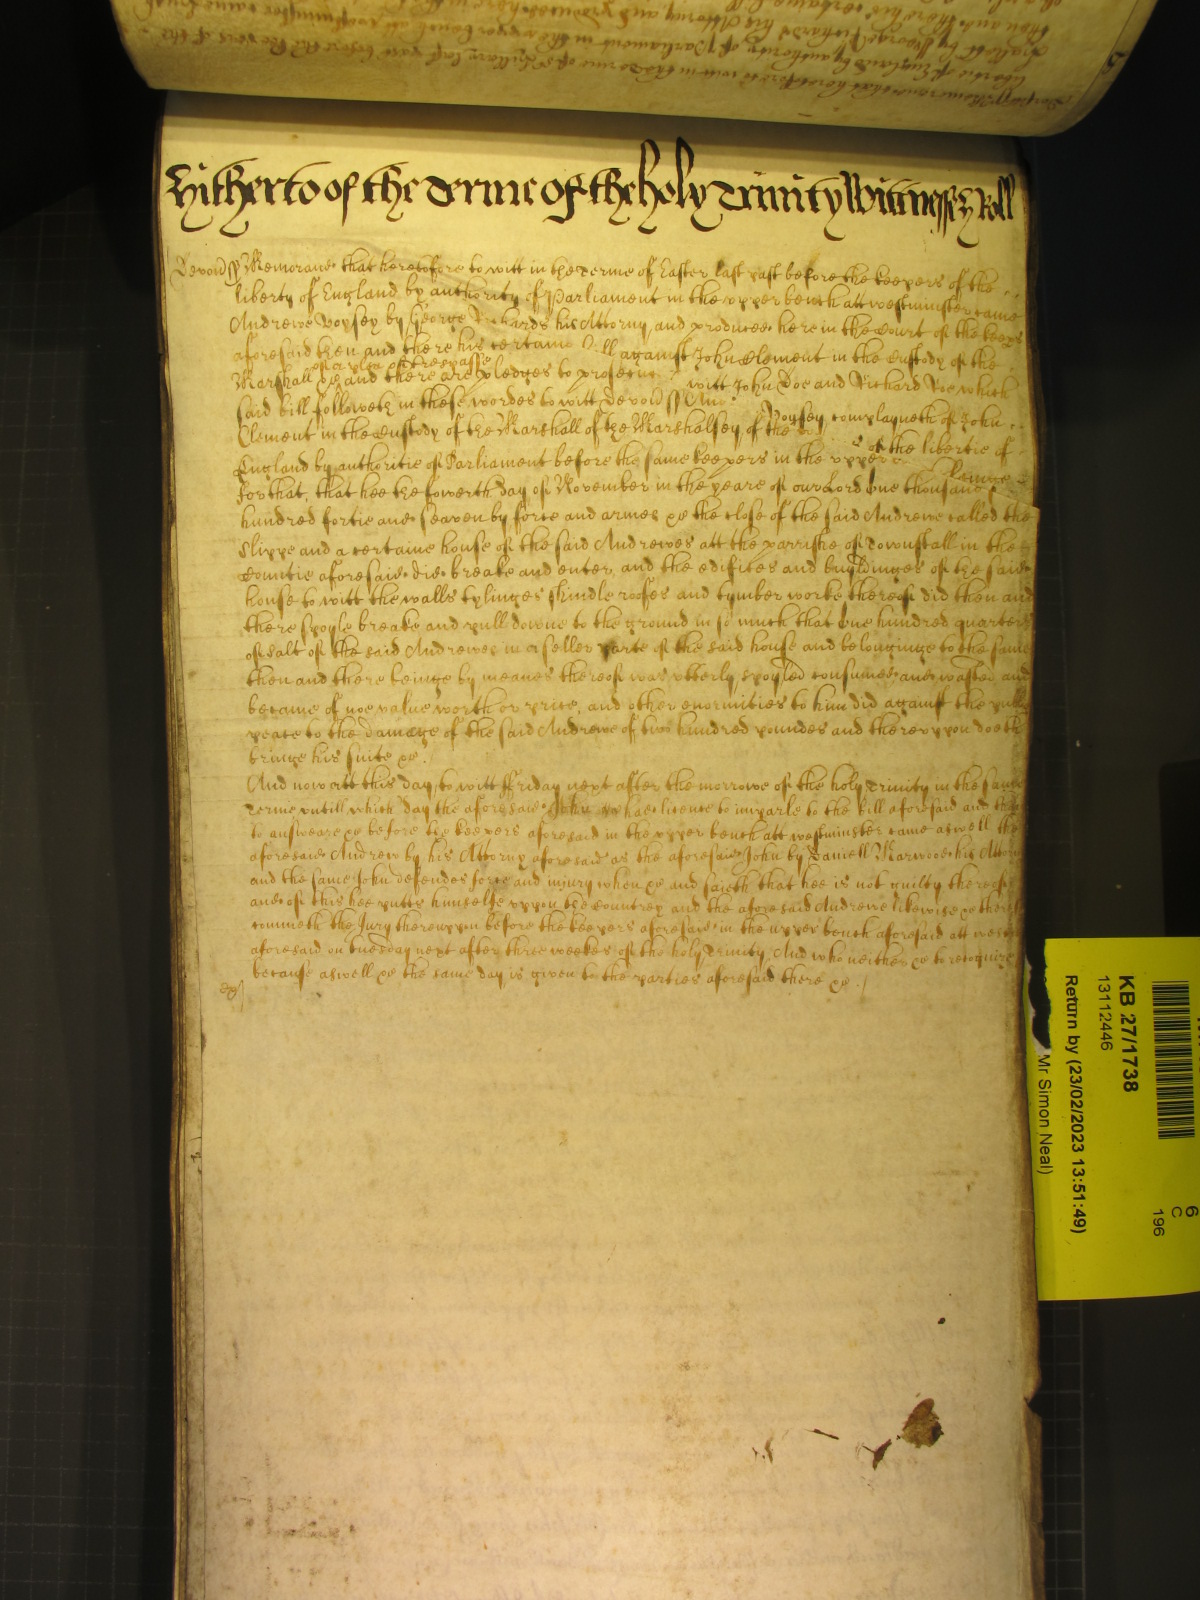 Hitherto of the Terme of the holy Trinity Witnesseth Roll
Devon ss Memorand that heretofore to witt in the terme of Easter last past before the keepers of the
liberty of England by authority of Parliament in the upper bench att westminster came
Andrewe Voysey by George Richards his Attorny and produced here in the Court of the keeps
aforesaid then and there his certaine Bill against John Clement in the Custody of the
of a plea of trespasse
Marshall &c and there are pledges to prosecute to witt John Doe and Richard Roe which
said bill followeth in these wordes to witt Devon ss And Voysey complayneth of John
Clement in the Custody of the Marshall of the Marshalsey of the of the libertie of
England by authoritie of Parliament before the same keepers in the upper beinge
for that, that hee the fowerth day of November in the yeare of our Lord one thousand
hundred fortie and seaven by force and armes &c the close of the said Andrewe called the
Slippe and a certaine house of the said Andrewes att the parrishe of Townstall in the
Countie aforesaid did breake and enter, and the edifices and buyldinges of the said
house to witt the walls tylinges shindle roofes and tymber worke thereof did then and
there spoyle breake and pull downe to the ground in so much that one hundred quarters
of salt of the said Andrewes in a seller parte of the said house and belonginge to the same
then and there beinge by meanes thereof was utterly spoyled consumed and wasted and
became of noe value worth or price, and other enormities to him did against the publ
peace to the damage of the said Andrewe of two hundred poundes and thereuppon doeth
bringe his suite &c.
And now att this day, to witt ffriday next after the morrowe of the holy Trinity in the same
terme untill which day the aforesaid John &c had licence to imparle to the bill aforesaid and then
to answeare &c before the keepers aforesaid in the upper bench att westminster came aswell the
aforesaid Andrew by his Attorny aforesaid as the aforesaid John by Daniell Marwood his Attorn
and the same John defendes force and injury when &c and saieth that hee is not guilty thereof
and of this hee putts himselfe uppon the Countrey and the aforesaid Andrewe likewise &c theref
commeth the Jury thereuppon before the keepers aforesaid in the upper bench aforesaid att west
aforesaid on tuesday next after three weekes of the holy Trinity And who neither &c to recognize
because aswell &c the same day is given to the parties aforesaid there &c.
KB 27/1738
13112446
Return by (23/02/2023 13:51:49)
Mr Simon Neal)
6
C
196